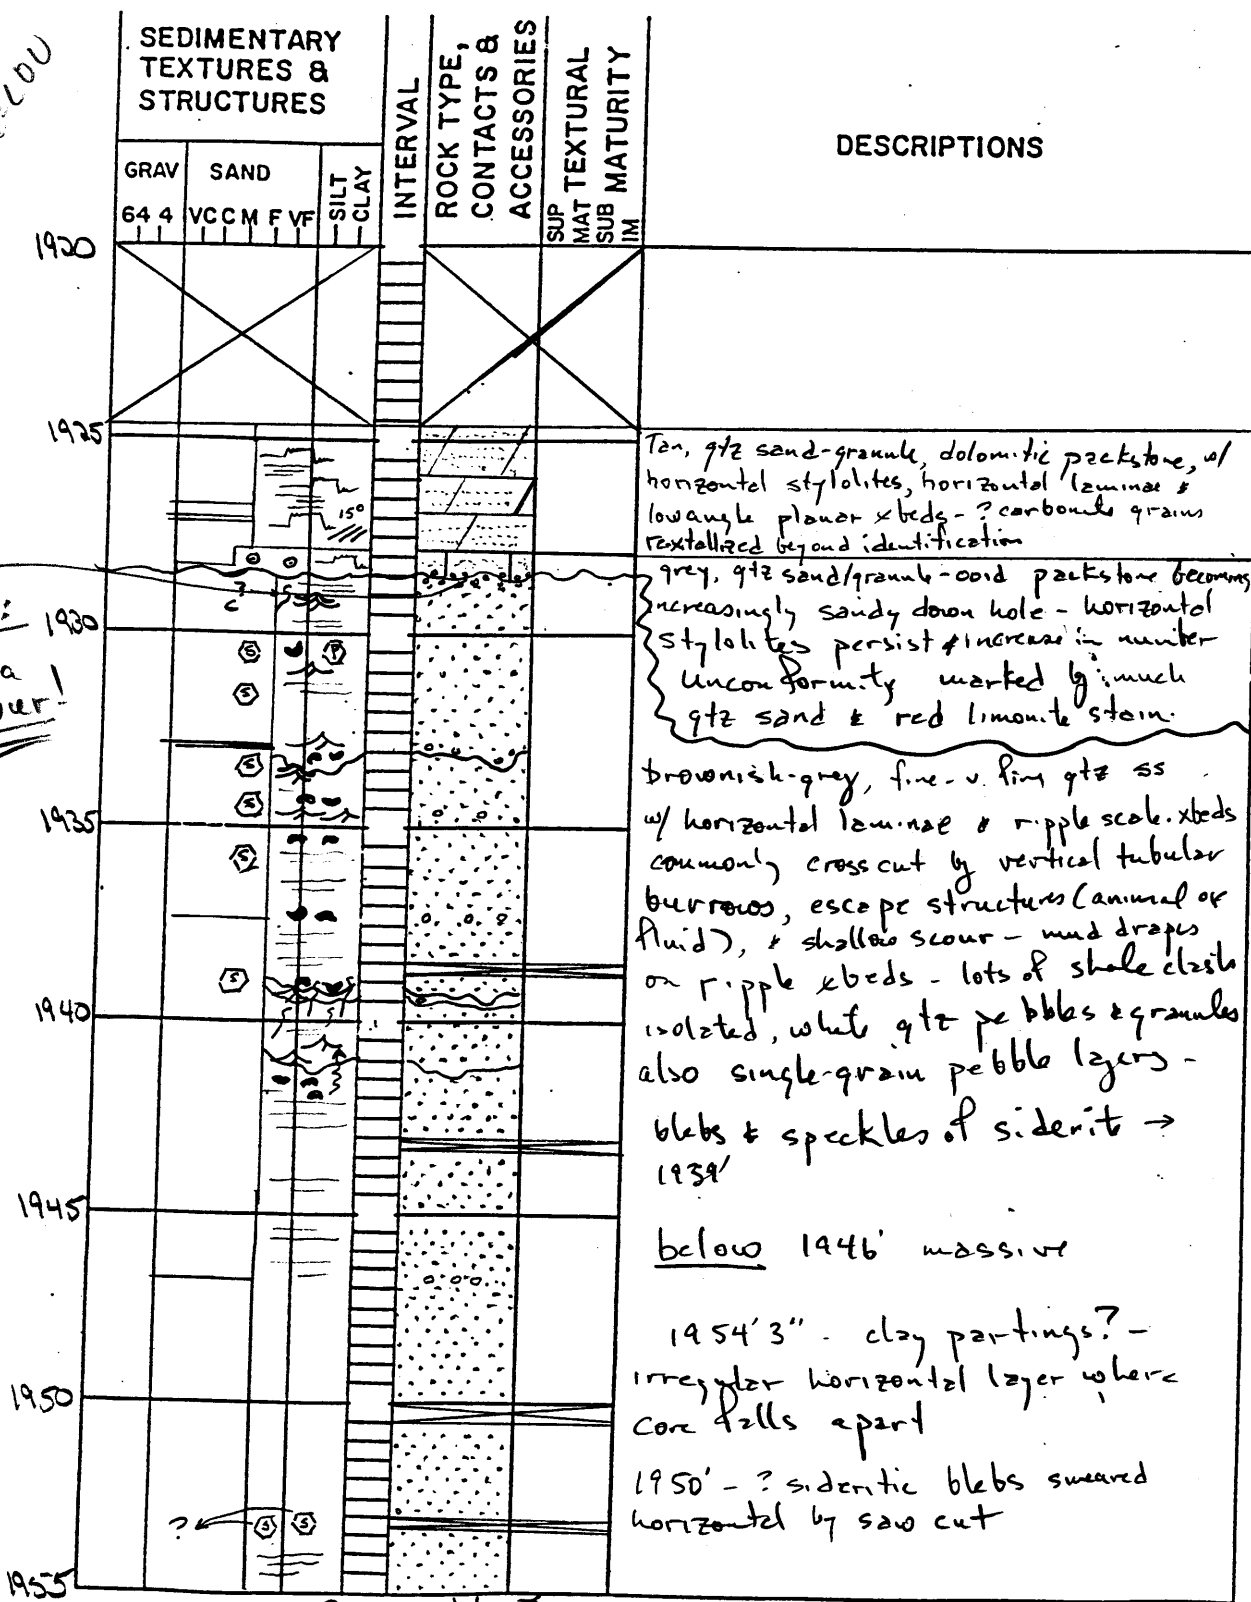 SEDIMENTARY
TEXTURES &
STRUCTURES
INTERVAL
ROCK TYPE,
CONTACTS &
ACCESSORIES
TEXTURAL
MATURITY
DESCRIPTIONS
GRAV SAND SILT CLAY
64 4 VC C M F VF
SUP MAT SUB IM
1920
1925
Tan, qtz sand-granule, dolomitic packstone, w/
horizontal stylolites, horizontal laminae &
low angle planar xbeds - ? carbonate grains
rextallized beyond identification
15°
grey, qtz sand/granule-ooid packstone becoming
increasingly sandy down hole - horizontal
stylolites persist & increase in number
Unconformity marked by much
qtz sand & red limonite stain.
?
1930
S P
S
S
S
1935
S
S
1940
brownish-grey, fine-v. fine qtz ss
w/ horizontal laminae & ripple scale xbeds
commonly crosscut by vertical tubular
burrows, escape structures (animal or
fluid), & shallow scour - mud drapes
on ripple xbeds - lots of shale clasts
isolated, white qtz pebbles & granules
also single-grain pebble layers -
blebs & speckles of siderite →
1939'
1945
below 1946' massive
1954'3" - clay partings? -
irregular horizontal layer where
core falls apart
1950
1950' - ? sideritic blebs smeared
horizontal by saw cut
? S S
1955